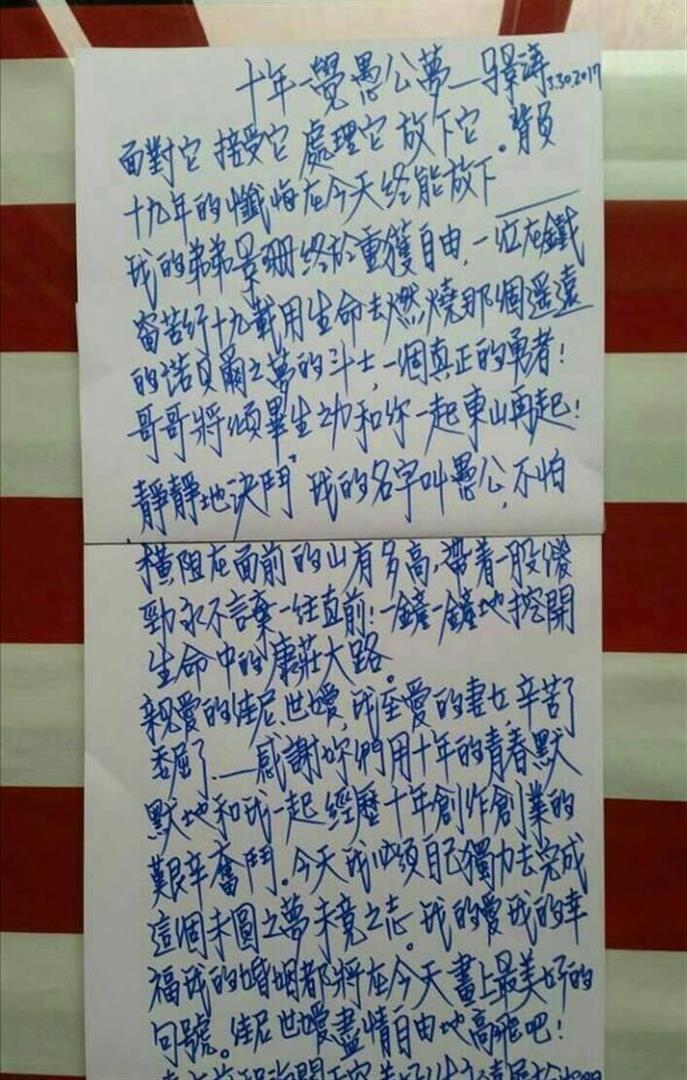 十年一覺愚公夢—马景涛 3.30.2017
面對它 接受它 處理它 放下它。背負
十九年的懺悔在今天终能放下——
我的弟弟景珊終於重獲自由,一位在鐵
窗苦行十九載用生命去燃燒那個遥遠
的诺贝爾之夢的斗士,一個真正的勇者!
哥哥將傾畢生之功和你一起東山再起!
靜靜地決鬥"我的名字叫愚公,不怕
橫阻在面前的山有多高,帶着一股傻
勁永不言棄一往直前!一鏟一鏟地挖開
生命中的康莊大路。
親愛的佳尼、世嬡,我至愛的妻女,辛苦了
委屈了——感謝妳們用十年的青春默
默地和我一起 經歷十年創作創業的
艱辛奮鬥。今天我必須自己獨力去完成
這個未圓之夢未竟之志。我的愛我的幸
福我的婚姻都將在今天畫上最美好的
句號。佳尼世嬡盡情自由地高飛吧!